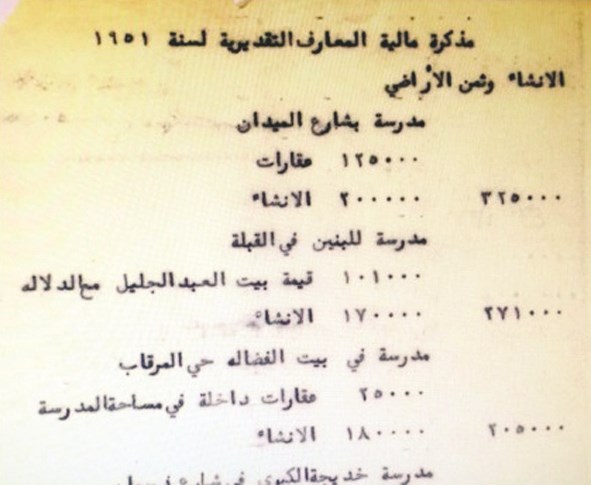 مذكرة مالية المعارف التقديرية لسنة ١٩٥١
الانشاء وثمن الأراضي
مدرسة بشارع الميدان
١٢٥٠٠٠ عقارات
٣٢٥٠٠٠ ٢٠٠٠٠٠ الانشاء
مدرسة للبنين في القبلة
١٠١٠٠٠ قيمة بيت العبدالجليل مع الدلاله
٢٧١٠٠٠ ١٧٠٠٠٠ الانشاء
مدرسة في بيت الفضاله حي المرقاب
٢٥٠٠٠ عقارات داخلة في مساحة المدرسة
٢٠٥٠٠٠ ١٨٠٠٠٠ الانشاء
مدرسة خديجة الكبرى في شارع